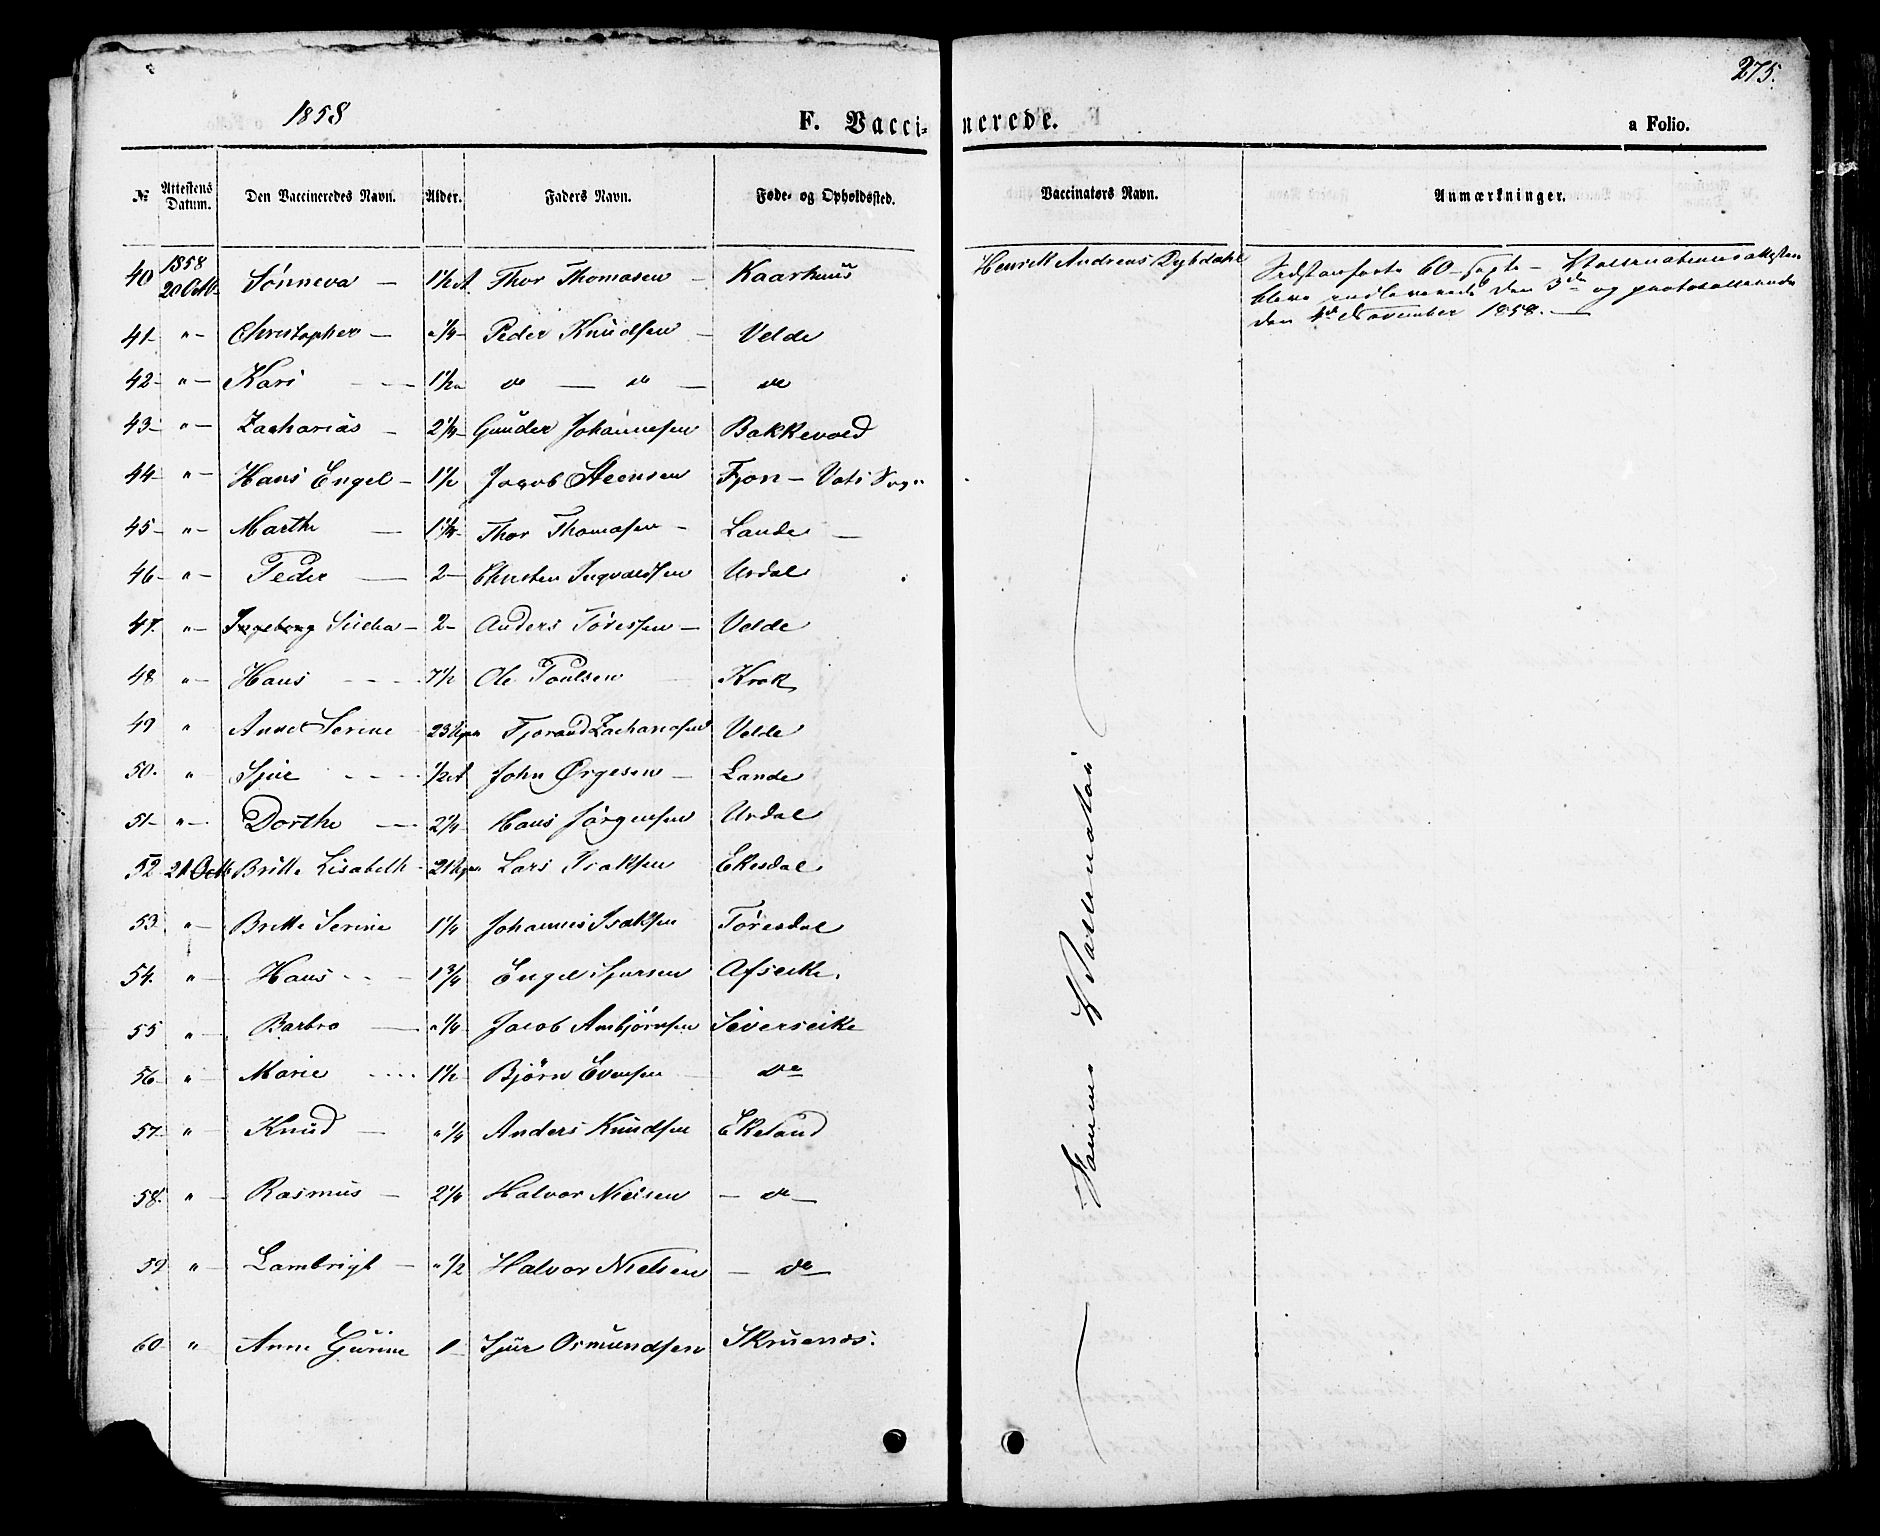 275.
1858
F. Vaccinerede.
a Folio.
№ Attestens Datum. Den Vaccineredes Navn. Alder. Faders Navn. Føde- og Opholdssted. Vaccinators Navn. Anmærkninger.
40 1858 20 Octb Sønneva — 1½ A Thor Thomasen — Kaarhuus Henrik Andreas
60 —
bleve den 3die og
den 4de November 1858. —
41 — " — Christopher — " ¼ — Peder Knudsen — Velde
42 — " — Kari — 1½ " do — do — do
43 — " — Zacharias — 2¼ — Gunder Johannesen Bakkevold
44 — " — Hans Engel — 1½ Jacob Steensen Fjon — Vats Sogn
45 — " — Marthe — 1¼ — Thor Thomasen — Lande —
46 — " — Peder — 2 — Christen Ingvaldsen Urdal
47. " — Ingeborg Siicha — 2 — Anders Tøressen — Velde
48 " — Hans 7½ Ole Poulsen Krak
49 " Anne Serine 23 Ugen Tjorand Zachariasen Velde
50. " Sjur ½ A John Ørgesen — Lande
51 — " — Dorthe — 2¼ Hans Jørgensen Urdal
52 21 Octb Britte Lisabeth — 21 Ugen Lars Isaksen Ekesdal
53. " — Britte Serine 1¼ Johannes Isaksen Tøresdal
54. " — Hans 1¾ Engel Sjursen Afseike.
55 " — Barbro — " ¼ — Jacob Ambjørnsen Siverseike
56 — " — Marie 1½ — Bjørn Evensen do
57 — " — Knud — " ¼ Anders Knudsen Ekeland
58. " — Rasmus — 2¼ Halvor Nielsen — do —
59 " — Lambrigt — " ½ Halvor Nielsen — do —
60 " — Anne Gurine 1 — Sjur Osmundsen Skruenæs.
Samme